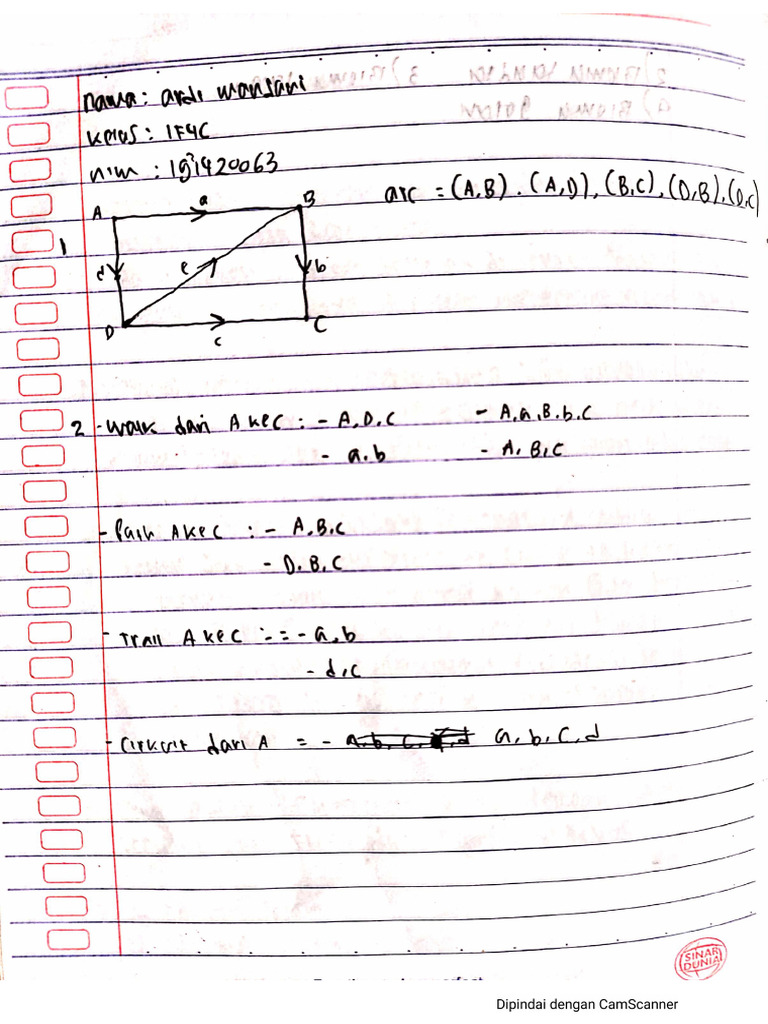 Nama: ardi wansani
Kelas: IF4C
nim : 191420063
arc = (A,B) . (A,D), (B,C), (D,B), (D,C)
1
A a B
d e b
D c C
2 - Walk dari A ke C : - A, D, C - A, a, B, b, C
- a, b - A, B, C
- Path A ke C : - A, B, C
- D, B, C
- Trail A ke C : = - a, b
- d, C
- Cirkuit dari A = - a, b, C, d
SINAR DUNIA
Dipindai dengan CamScanner